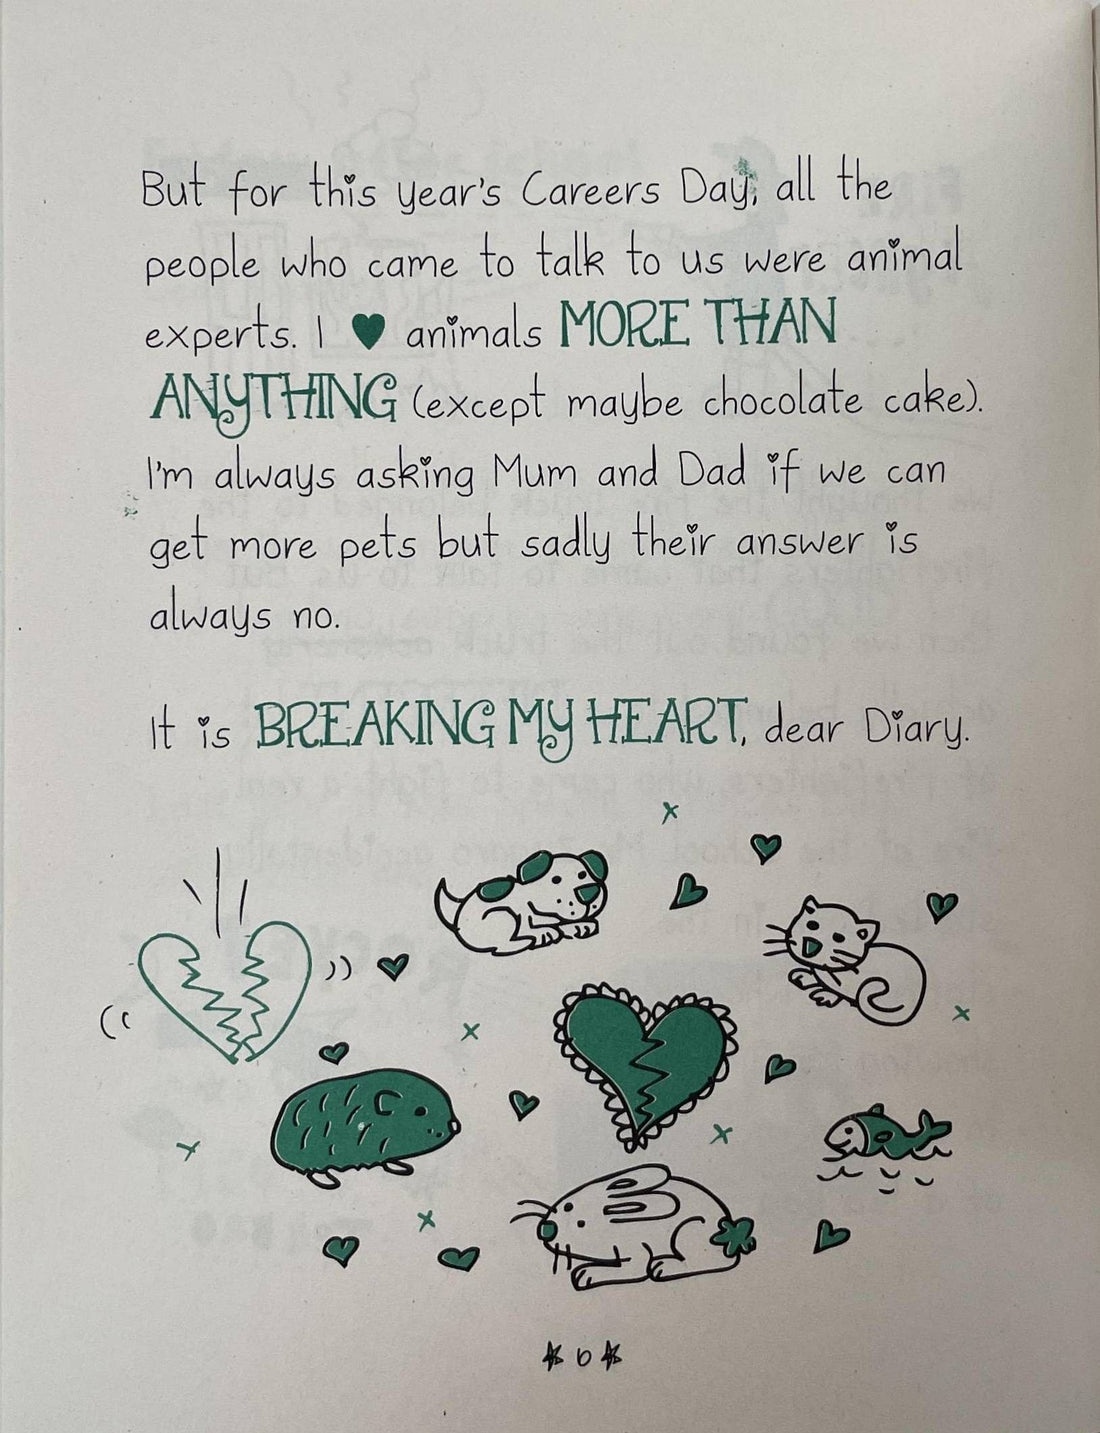 But for this year's Careers Day, all the
people who came to talk to us were animal
experts. I ♥ animals MORE THAN
ANYTHING (except maybe chocolate cake).
I'm always asking Mum and Dad if we can
get more pets but sadly their answer is
always no.
It is BREAKING MY HEART, dear Diary.
6